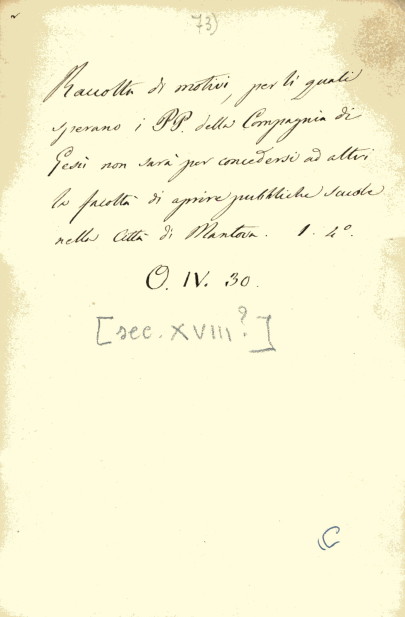 73)
Raccolta di motivi, per li quali
sperano i PP. della Compagnia di
Gesù non sarà per concedersi ad altri
la facoltà di aprire pubbliche scuole
nella Città di Mantova. 1. 4°.
O. IV. 30.
[sec. XVIII?]
C